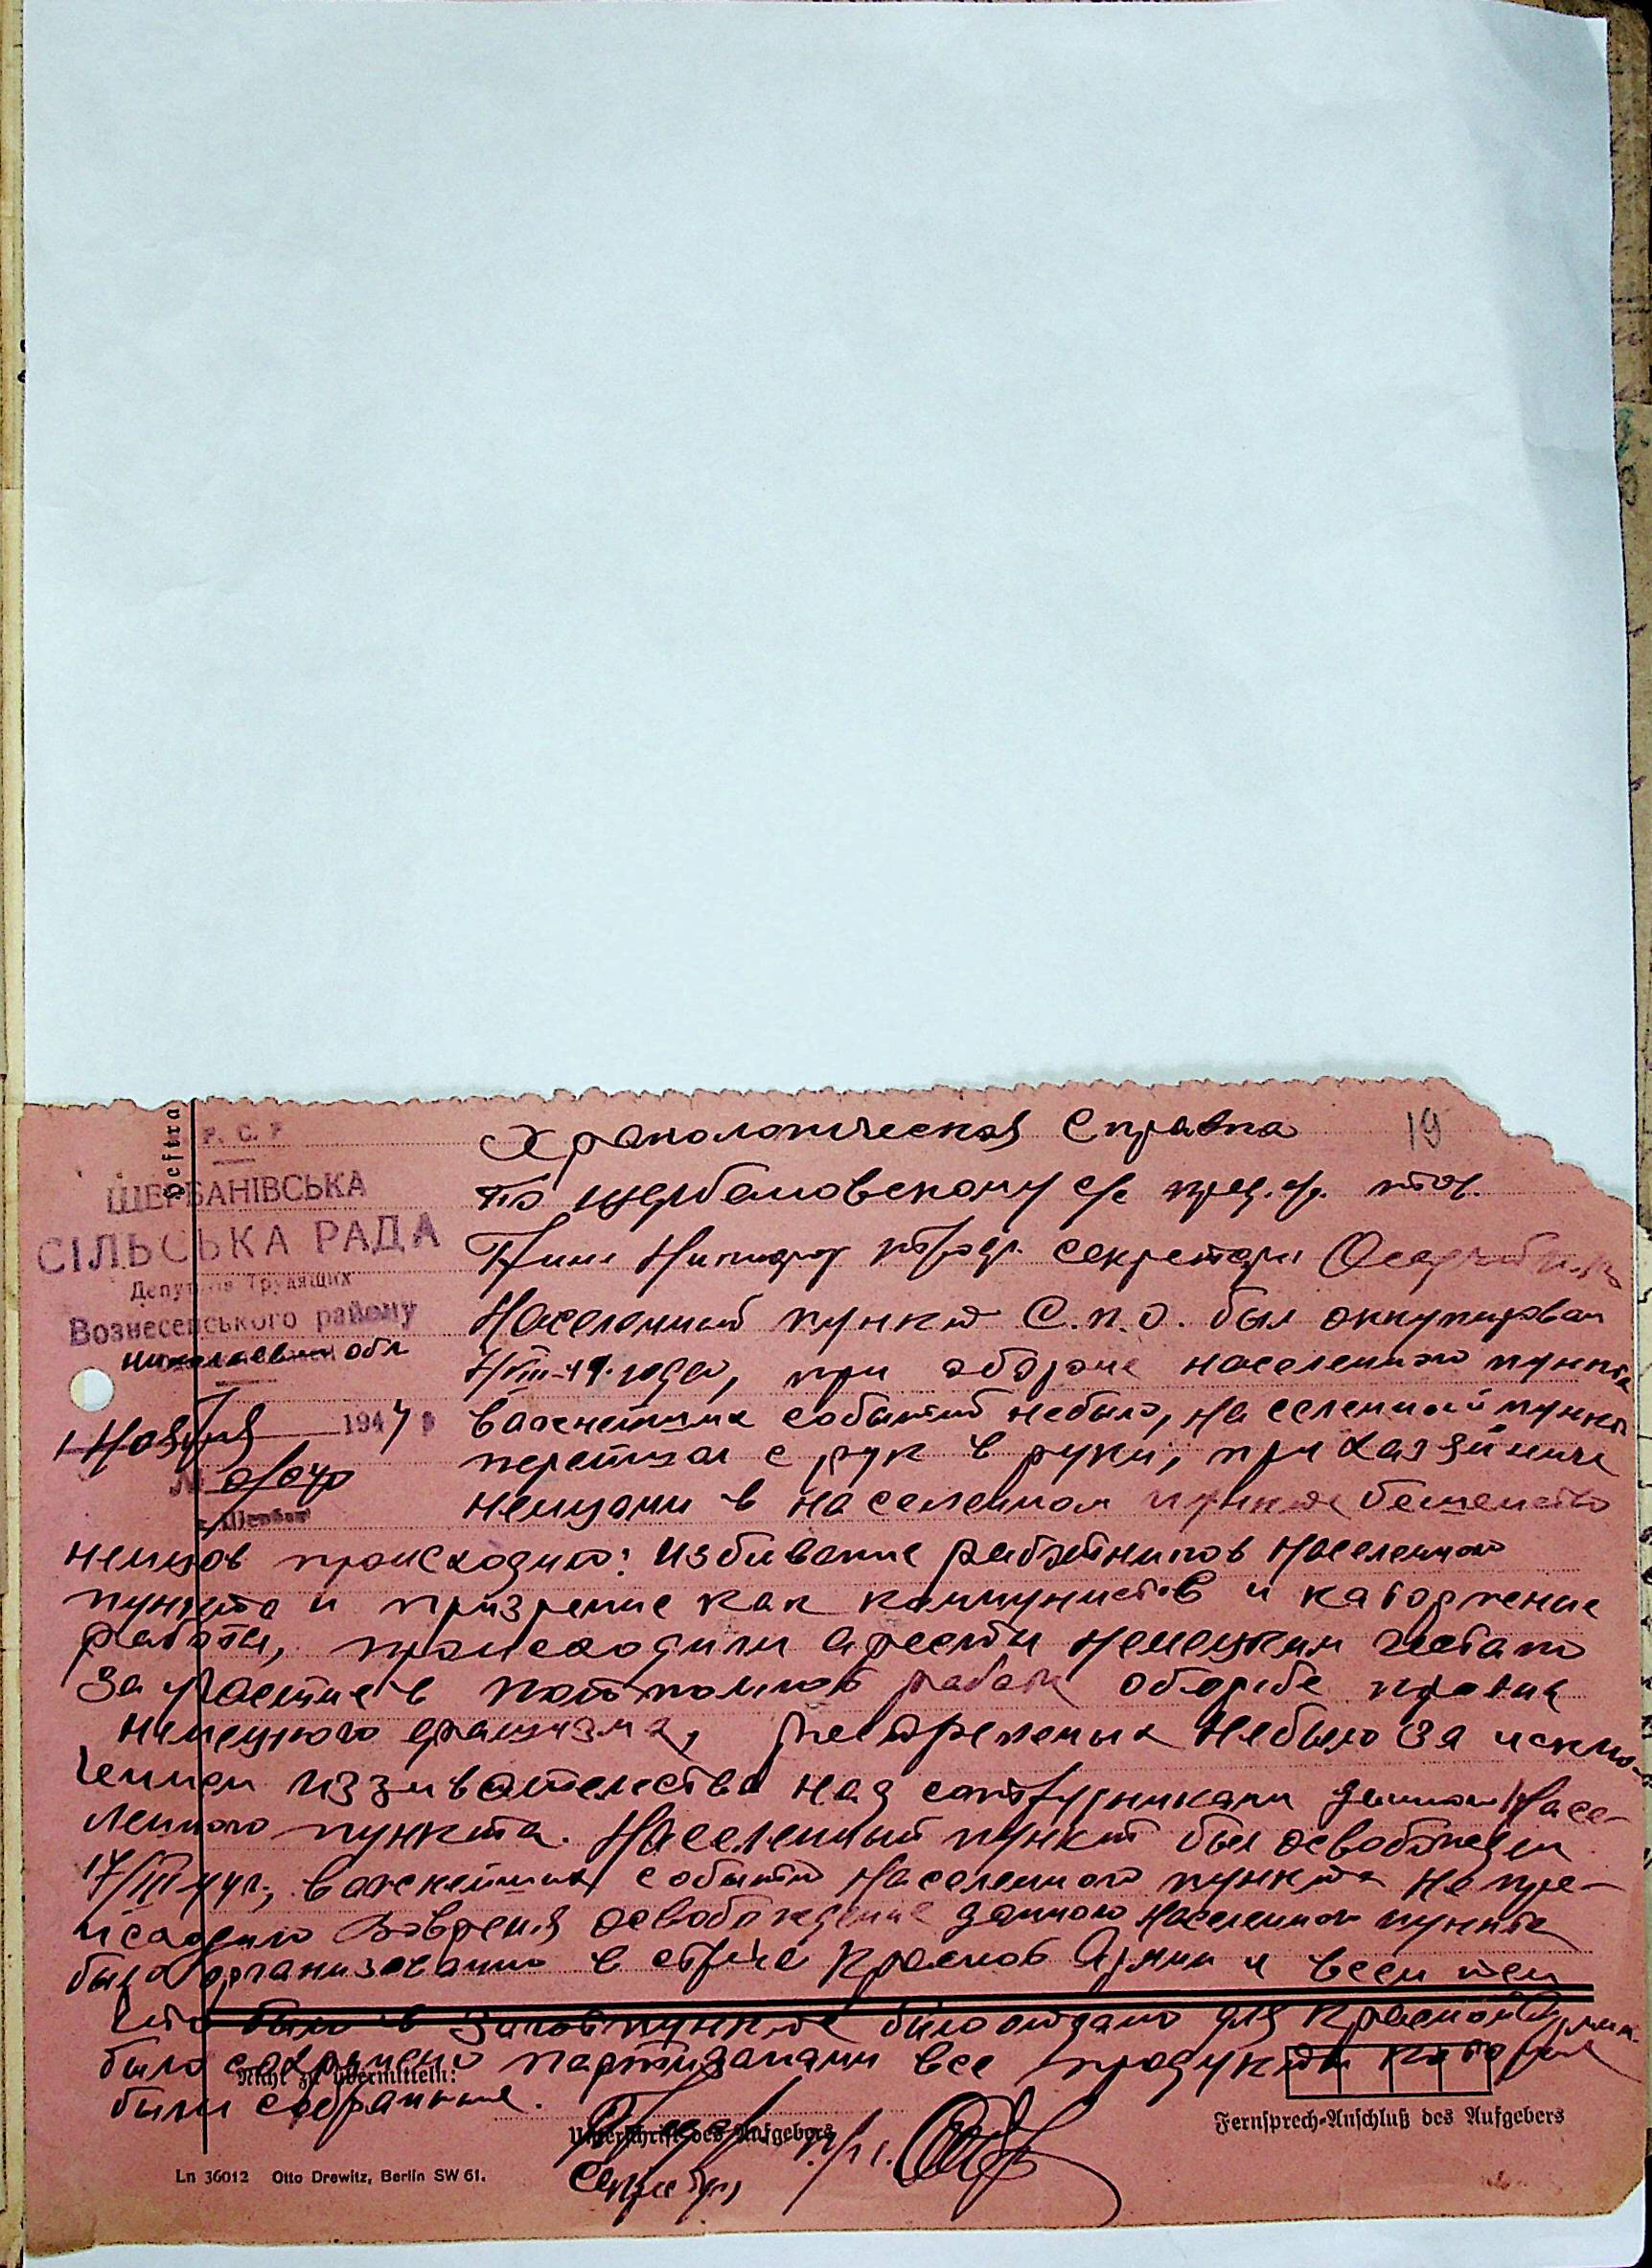 19
Хронологическая Справка
по Щербановскому с/с
секретари
Населенный пункт С.п.о. был оккупирован
года, при обороне населенного пункта
важнейших событий небыло, населенный пункт
перешол с рук в руки, при хазяйнич
немцами в населенном пункте бешенство
немцов происходило: избивание работников населенного
пункта и призрение как коммунистов и каторжение
работы, происходили аресты немецким гестапо
За участие в работах оборбе против
немецкого фашизма, растреленых небыло за исклю-
чением иззивательства над сотрудниками данного Насе-
ленного пункта. Населенный пункт был освобожден
17/III 44г., важнейших событий Населенного пункта не прои-
исходило вовремя освобождение данного населенного пункта
было организованно встреча Красной Армии и всем тем
что было в заготпункте было отдано для Красной Армии.
было сохранено партизанами все продукты которые
были собранные.
Секретарь
Р. С. Р
ЩЕРБАНІВСЬКА
СІЛЬСЬКА РАДА
Депутатів Трудящих
Вознесенського району
Николаевской обл
1 Ноября 1944 р
№
с. Щербани
Nicht zu übermitteln:
Unterschrift des Aufgebers
Fernsprech-Anschluß des Aufgebers
Ln 36012 Otto Drewitz, Berlin SW 61.